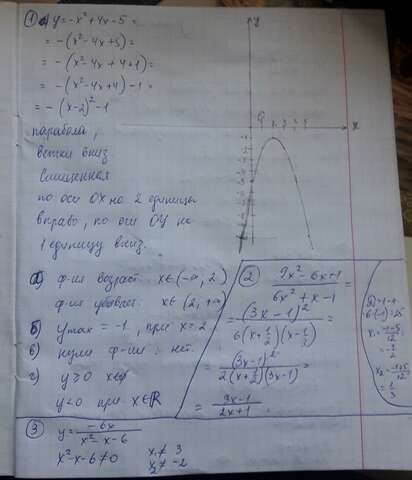 ① а) y=-x²+4x-5=
= -(x²-4x+5)=
= -(x²-4x+4+1)=
= -(x²-4x+4)-1=
= -(x-2)²-1
парабола,
ветки вниз
смещенная
по оси OX на 2 единицы
вправо, по оси OY на
1 единицу вниз.
y
x
а) ф-ия возраст. x∈(-∞, 2)
ф-ия убывает x∈(2, +∞)
б) y max = -1, при x=2
в) нули ф-ии: нет.
г) y≥0 x∈∅
y<0 при x∈R
② 9x²-6x+1 / 6x²+x-1 =
= (3x-1)² / 6(x+1/2)(x-1/3) =
= (3x-1)² / 2(x+1/2)(3x-1) =
= 3x-1 / 2x+1
6·(-1)=25
x₁=-1-5/12
= -1/2
x₂=-1+5/12
= 1/3
③ y= -6x / x²-x-6
x²-x-6≠0
x₁≠3
x₂≠-2